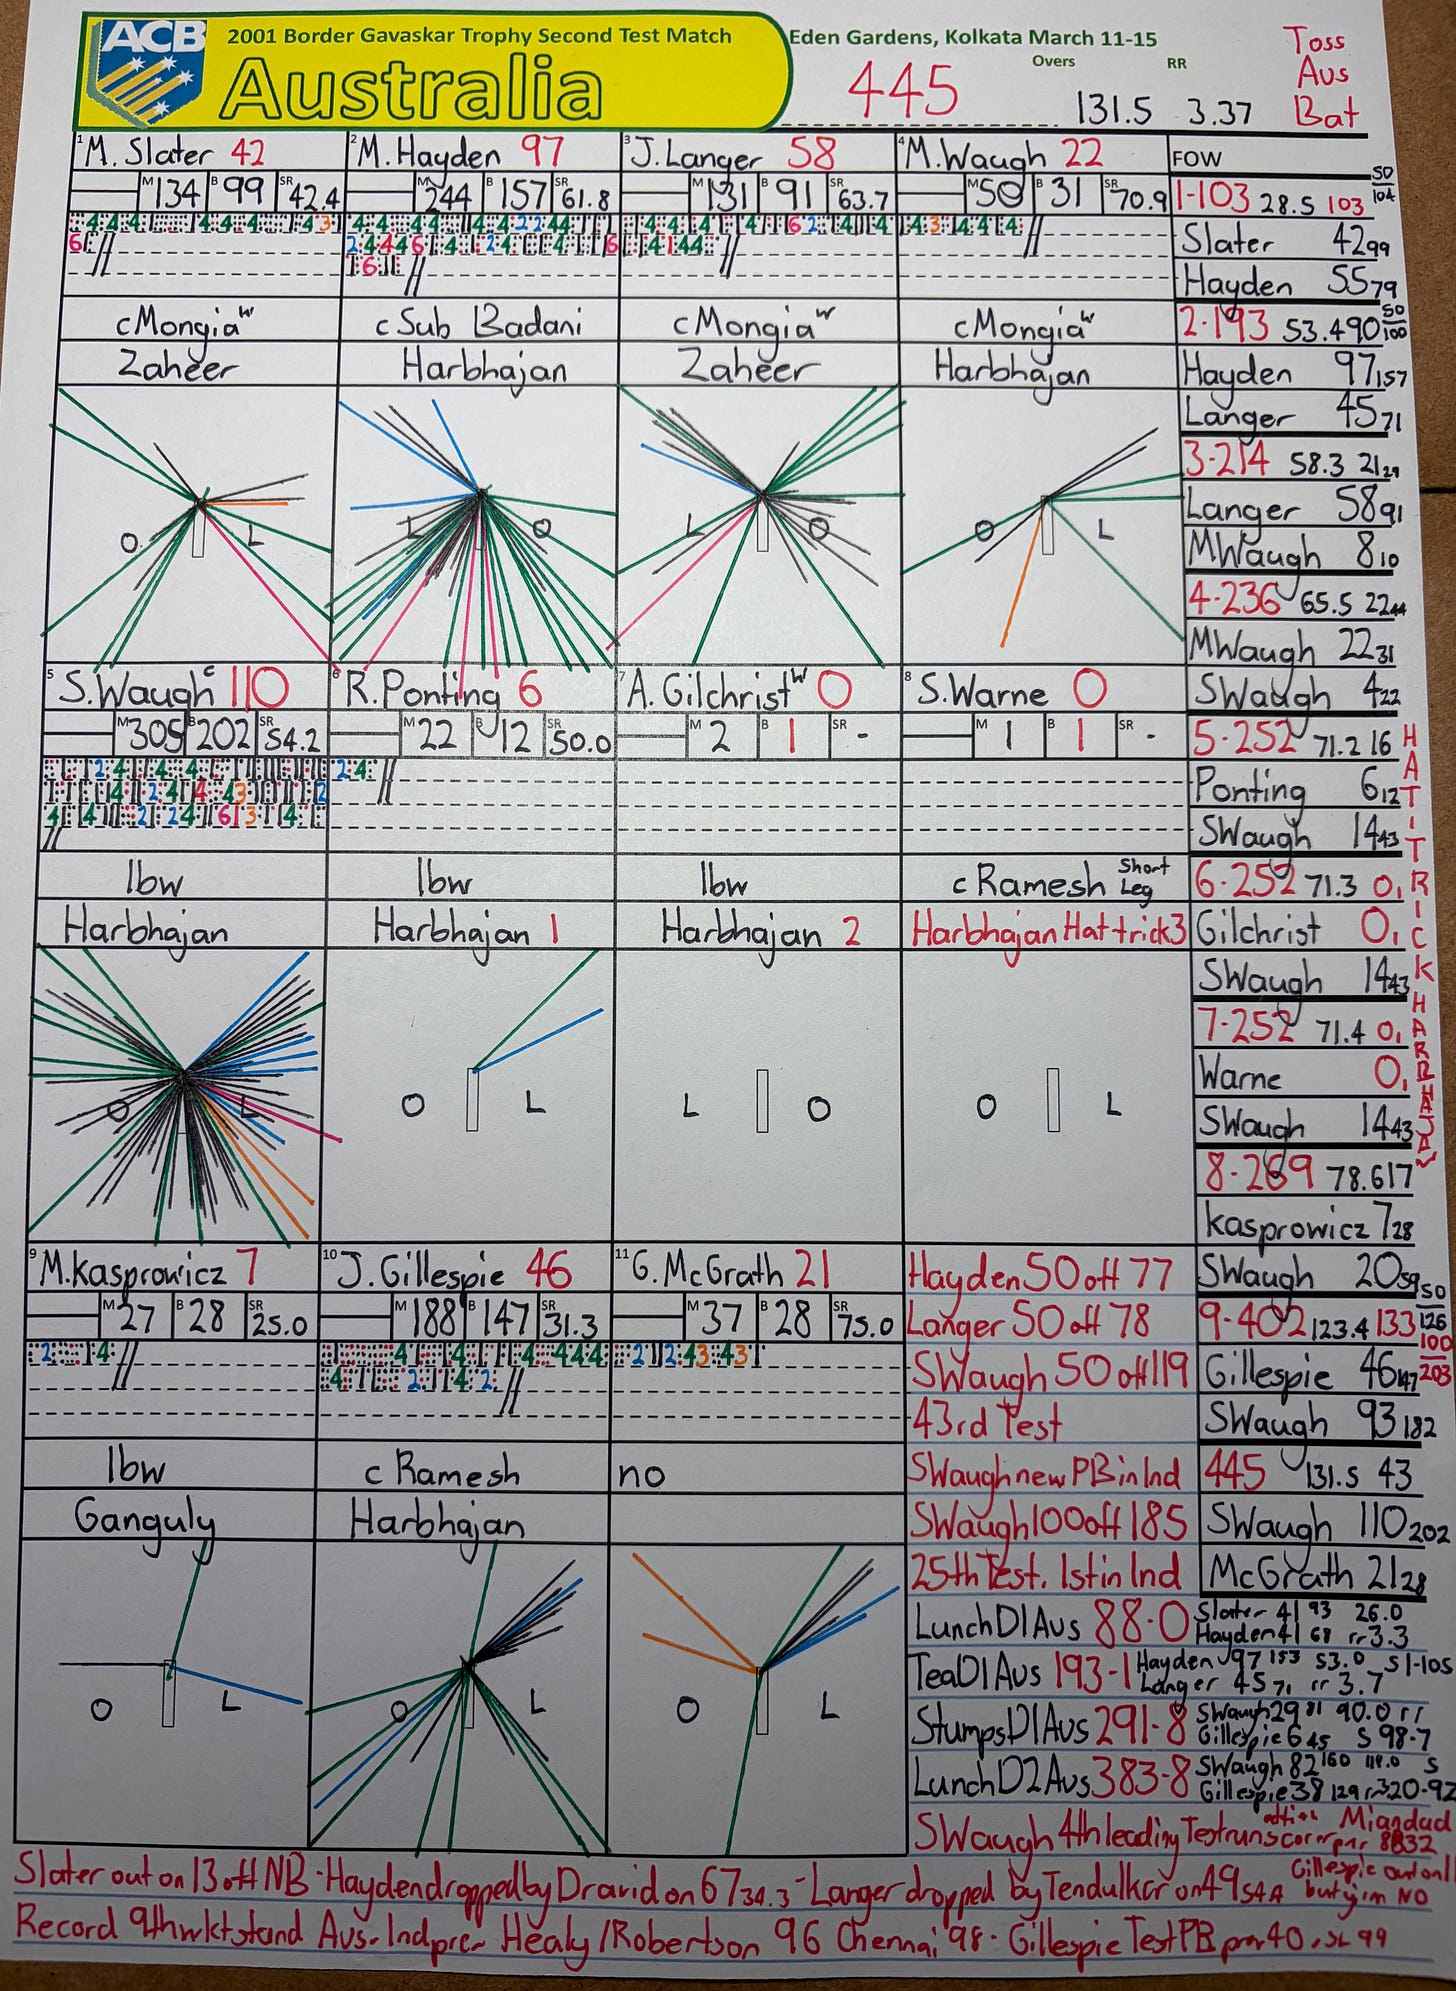 ACB
2001 Border Gavaskar Trophy Second Test Match
Australia
Eden Gardens, Kolkata March 11-15
Overs RR
445 131.5 3.37
Toss
Aus
Bat
1 M. Slater 42
M 134 B 99 SR 42.4
cMongia w
Zaheer
O L
2 M. Hayden 97
M 244 B 157 SR 61.8
c Sub Badani
Harbhajan
L O
3 J. Langer 58
M 131 B 91 SR 63.7
cMongia w
Zaheer
L O
4 M. Waugh 22
M 50 B 31 SR 70.9
cMongia w
Harbhajan
O L
5 S. Waugh c 110
M 305 B 202 SR 54.2
lbw
Harbhajan
O L
6 R. Ponting 6
M 22 B 12 SR 50.0
lbw
Harbhajan 1
O L
7 A. Gilchrist w 0
M 2 B 1 SR -
lbw
Harbhajan 2
L O
8 S. Warne 0
M 1 B 1 SR -
c Ramesh Short Leg
Harbhajan Hat trick 3
O L
9 M. Kasprowicz 7
M 27 B 28 SR 25.0
lbw
Ganguly
O L
10 J. Gillespie 46
M 188 B 147 SR 31.3
c Ramesh
Harbhajan
O L
11 G. McGrath 21
M 37 B 28 SR 75.0
no
O L
FOW
1-103 28.5 103 50 104
Slater 42 99
Hayden 55 79
2-193 53.4 90 50 100
Hayden 97 157
Langer 45 71
3-214 58.3 21 29
Langer 58 91
MWaugh 8 10
4-236 65.5 22 44
MWaugh 22 31
SWaugh 4 22
5-252 71.2 16
Ponting 6 12
SWaugh 14 43
6-252 71.3 0 1
Gilchrist 0 1
SWaugh 14 43
7-252 71.4 0 1
Warne 0 1
SWaugh 14 43
HAT TRICK HARBHAJAN
8-269 78.6 17
Kasprowicz 7 28
SWaugh 20 59
9-402 123.4 133 50 126 100 203
Gillespie 46 147
SWaugh 93 182
445 131.5 43
SWaugh 110 202
McGrath 21 28
Hayden 50 off 77
Langer 50 off 78
SWaugh 50 off 119
43rd Test
SWaugh new PB in Ind
SWaugh 100 off 185
25th Test. 1st in Ind
Lunch D1 Aus 88-0 Slater 41 93 26.0
Hayden 41 68 rr 3.3
Tea D1 Aus 193-1 Hayden 97 153 53.0 S 1-105
Langer 45 71 rr 3.7
Stumps D1 Aus 291-8 SWaugh 29 81 90.0 rr
Gillespie 6 45 S 98-7
Lunch D2 Aus 383-8 SWaugh 82 160 119.0 S
Gillespie 38 129 rr 3.20-92
SWaugh 4th leading Test runs scorer Miandad 8832
Slater out on 13 off NB - Hayden dropped by Dravid on 67 34.3 - Langer dropped by Tendulkar on 49 Gillespie out on 11 but NO
Record 9th wkt stand Aus-Ind prev Healy/Robertson 96 Chennai 98 - Gillespie Test PB prev 40 SL 99